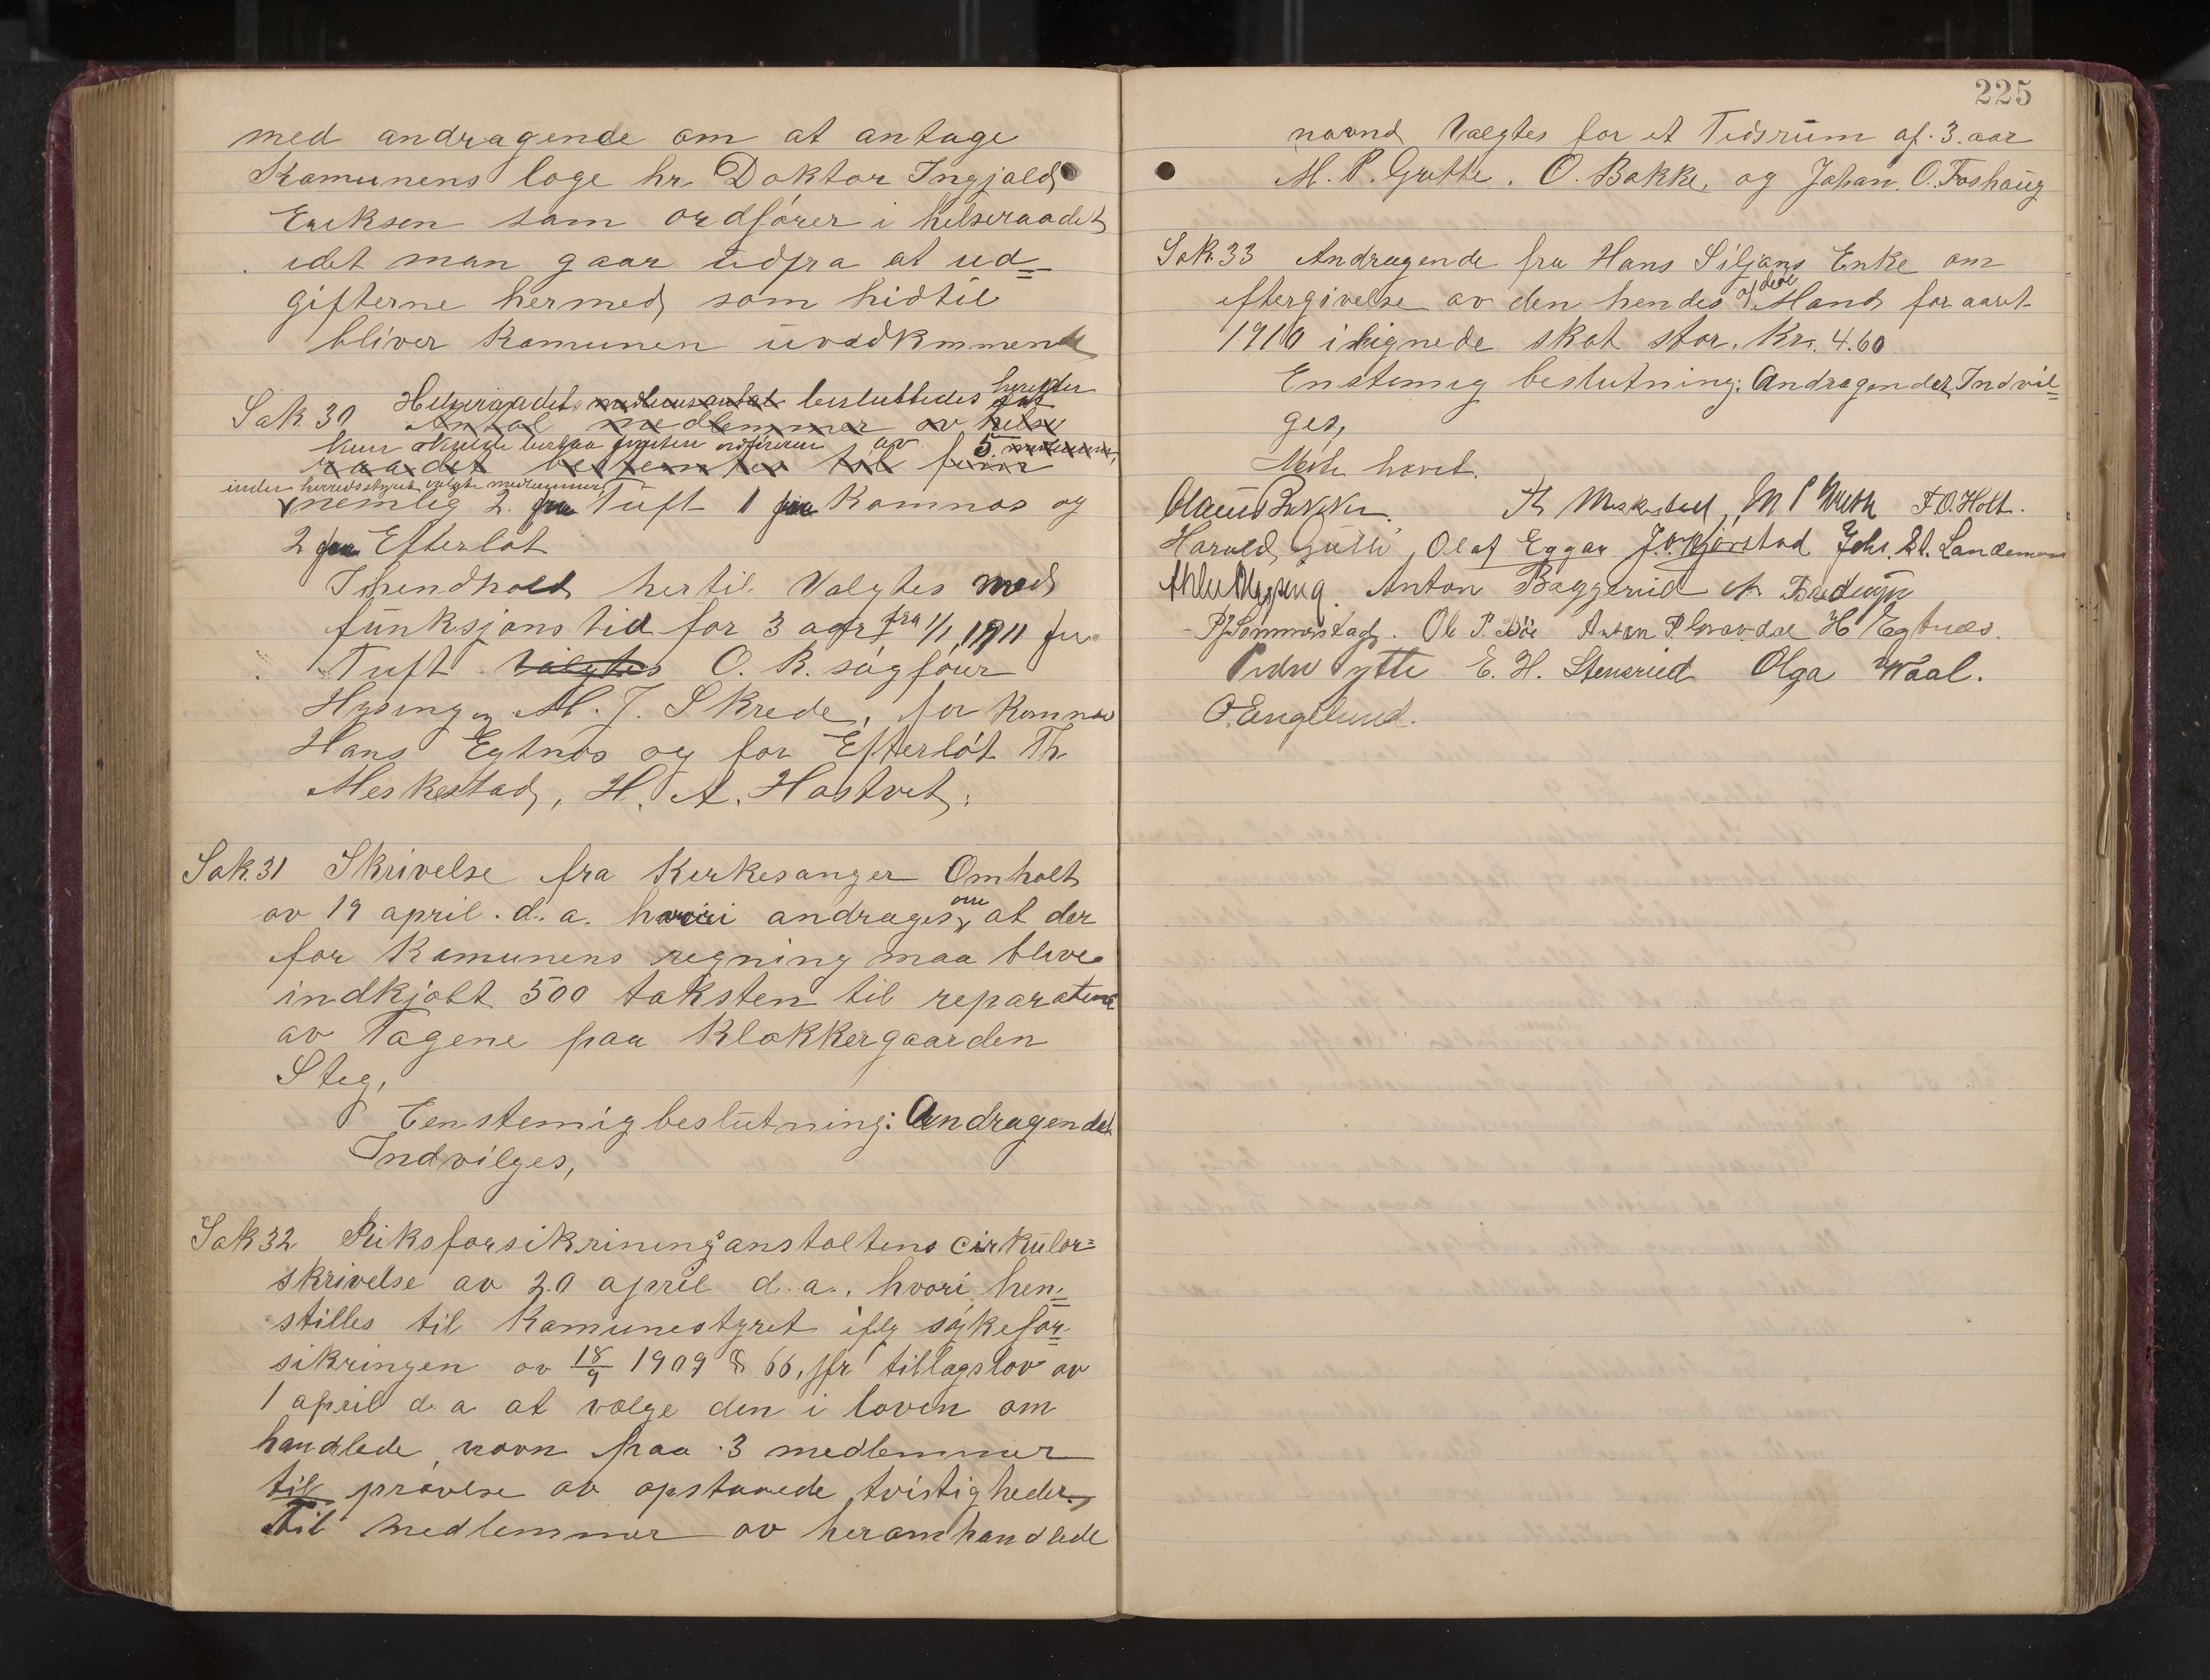 med andragende om at antage
Komunens læge hr. Doktor Ingjald
Eriksen som ordfører i helseraadet
idet man gaar udfra at ud=
gifterne hermed, som hidtil
bliver Komunen uvedkmmende
Sak 30 Helseraadet besluttedes herefter at
Antal medlemmer av helse
skulde bestaa foruten ordføreren av 5
raadet bestemtes til fem
inden herredsstyret valgte medlemmer,
nemlig 2 fra Tuft 1 fra Komnæs og
2 fra Efteløt
I henhold hertil Valgtes med
funksjonstid for 3 aar fra 1/1 1911 for
Tuft Valgtes O. R. sagfører
Hysing og M. J. Skrede, for Komnæs
Hans Egtnæs og for Efterløt Th
Meskestad, H. A. Hostvet.
Sak.31 Skrivelse fra Kirkesanger Omholt
av 19 april. d. a. hvori andrages om at der
for Komunens regning maa blive
indkjøbt 500 taksten til reparation
av Tagene paa Klokkergaarden
Steg,
Eenstemig beslutning: Andragendet
Indvilges,
Sak 32 Riksforsikriningsanstaltens cirkulær=
skrivelse av 20 april d. a., hvori hen=
stilles til Komunestyret ifølg sykefor=
sikringen av 18/9 1909 § 66, jfr tillagslov av
1 april d. a at vælge den i loven om
handlede nævn paa 3 medlemmer
til prøvelse av opstaaede tvistigheder,
Til medlemmer av heromhandlede
225
nævnd Valgtes for et Tidsrum af. 3. aar
M. P. Gutte. O. Bakke, og Johan. O. Foshaug
Sak.33 Andragende fra Hans Siljans Enke om
eftergivelse av den hendes afdøde Mand for aaret
1910 ilignede skat stor. Kr. 4.60
Enstemig beslutning: Andragendet Indvil=
ges,
Møte hævet.
Olaus Bakke. Th Meskestad, M P Gutte T. O. Holt.
Harald Gutte, Olaf Eggar Joh. St. Landemoen
Anton Baggerud
P. J. Sommerstad. Ole P. Bøe Anton P. Gravdal H Egtnæs.
Peder Lytte E. H. Stensrud Olga Waal.
O. Englund.